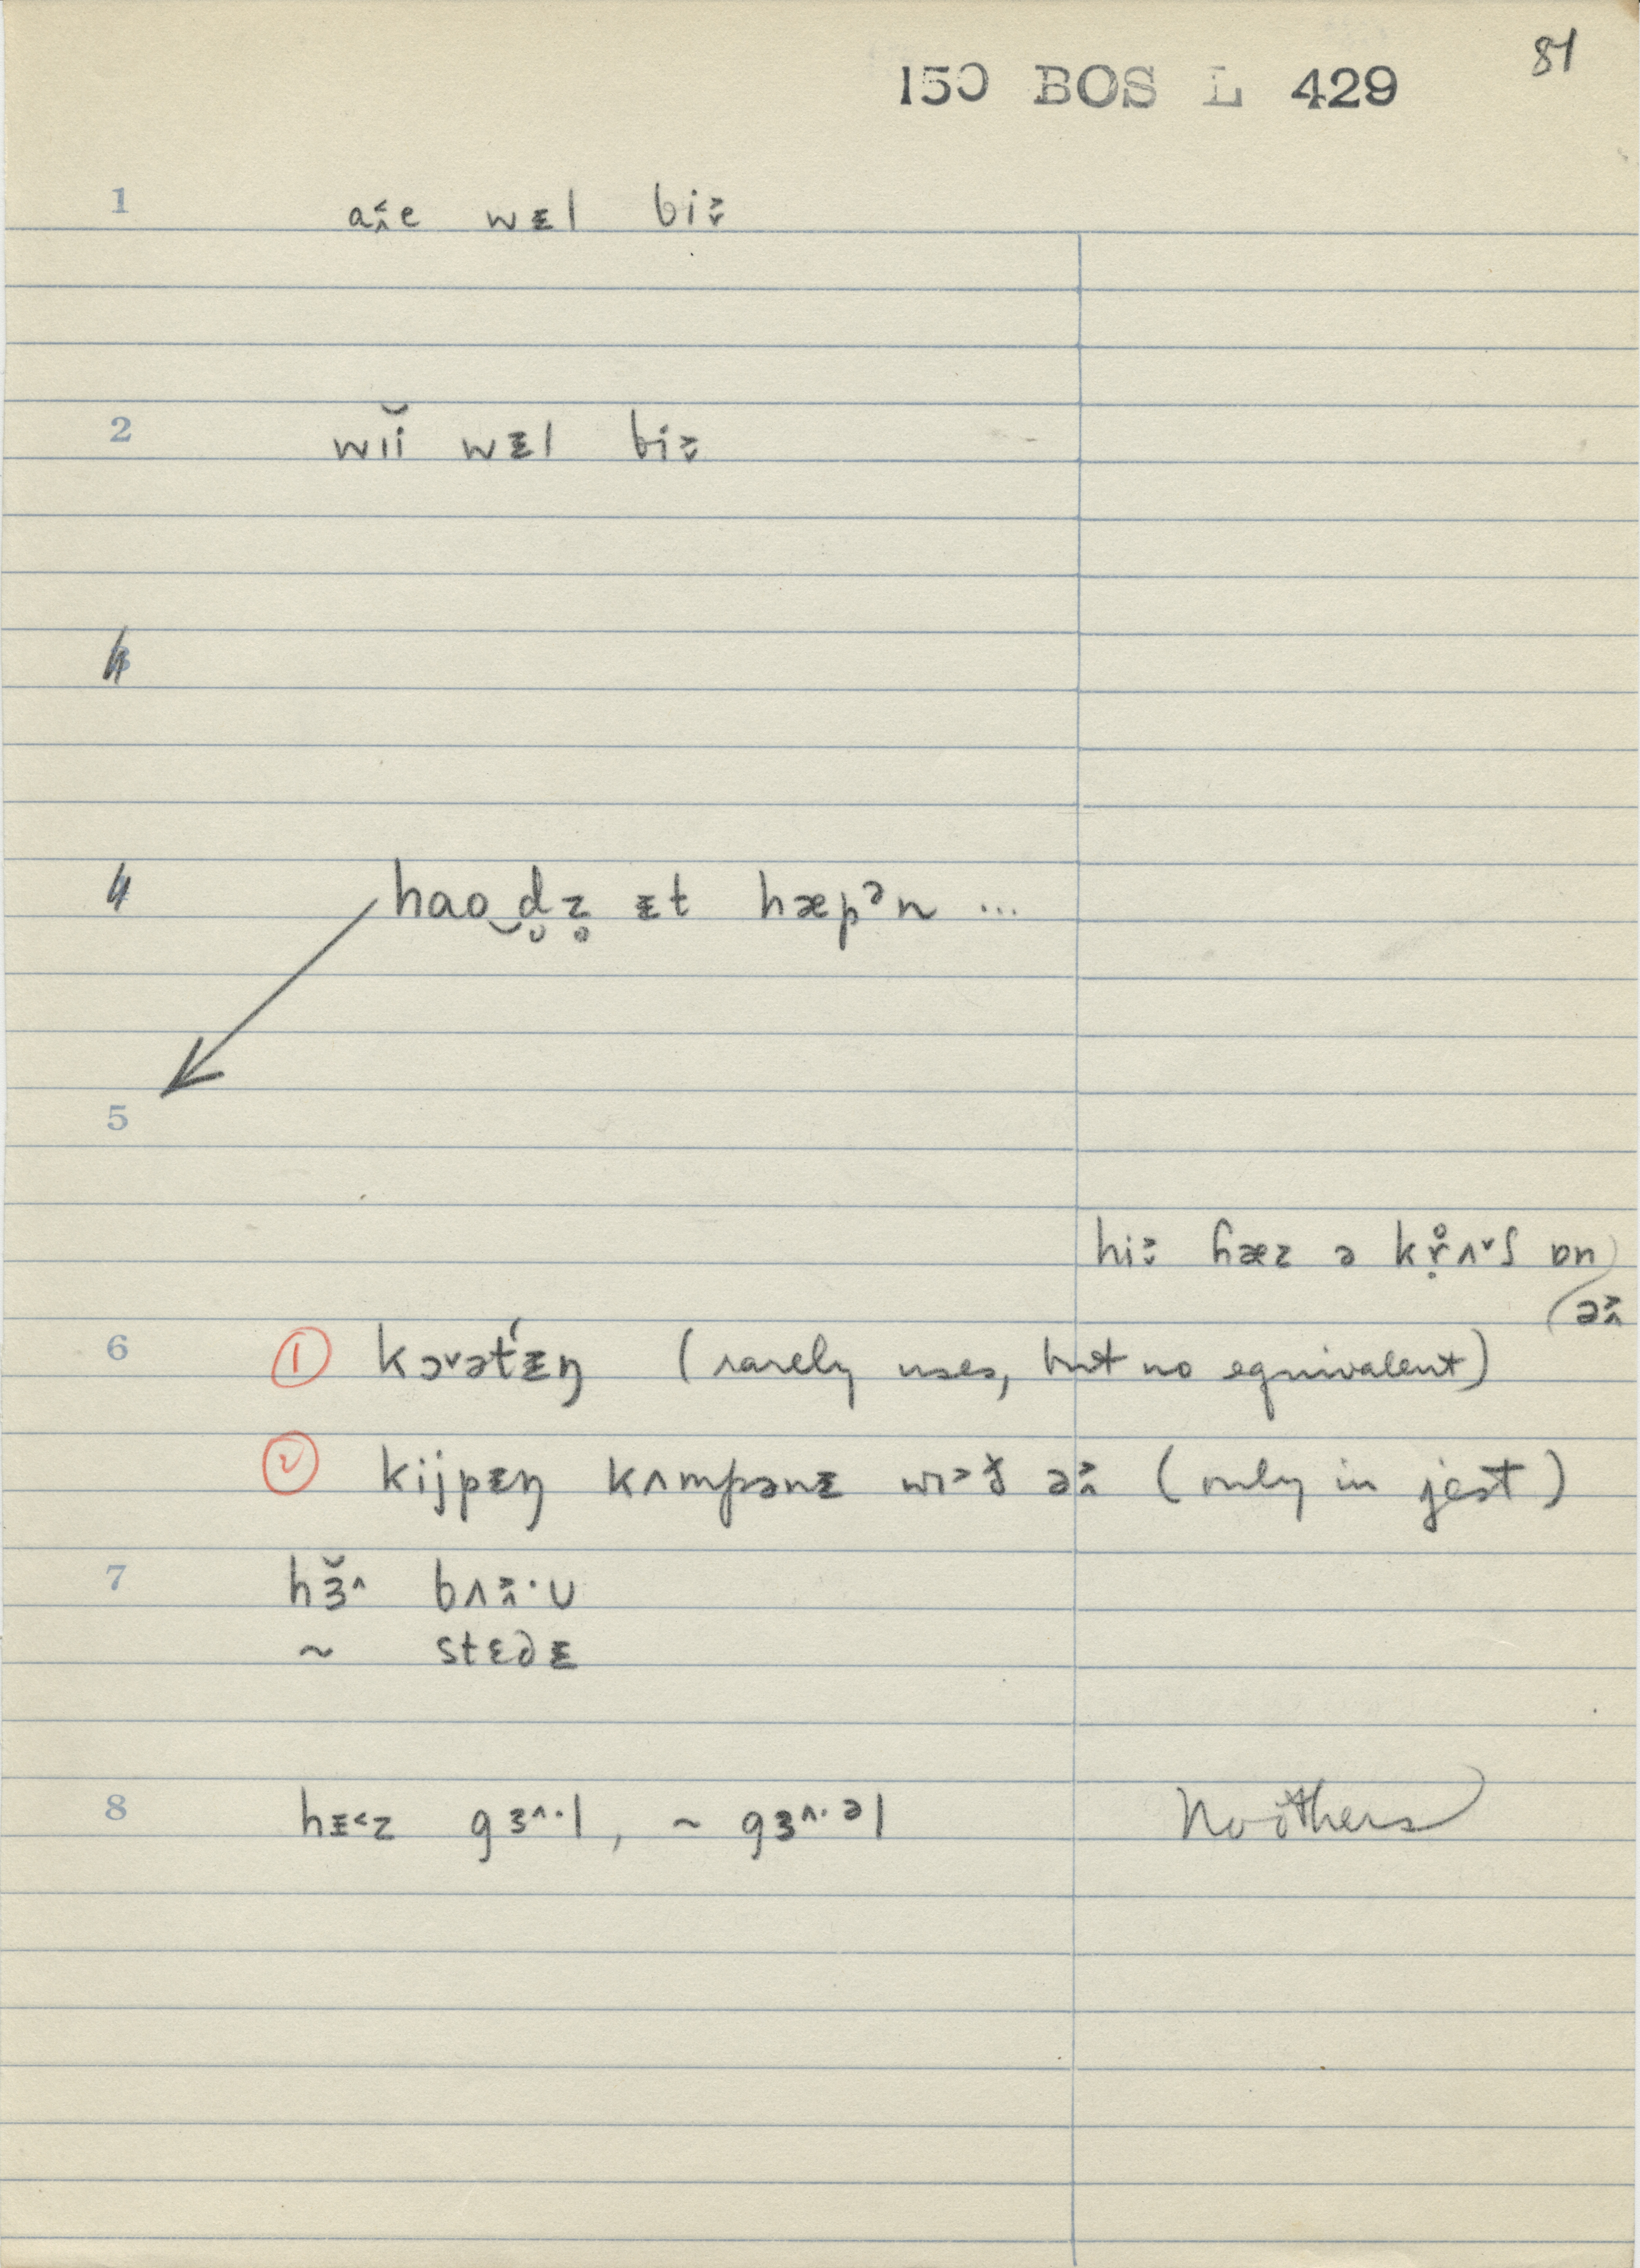 150 BOS L 429 81
1 aɪ˂˰e wᵻl bi˃˯
2 wɪĭ wᵻl bi˃˯
3
4 hao‿d̬z̥ ᵻt hæpᵊn ...
5
hi˃˯ ɦæz ə kr̥ʌ˅ʃ ɒn
ə˞
6 ① kɔ˅ət́ᵻŋ (rarely uses, but no equivalent)
② kijpᵻŋ kʌmpənᵻ wɪ˃ð ə˞ (only in jest)
7 hɜ̆˄ bʌɪ˃˰·ʋ
~ stɛdᵻ
8 hᵻ˂z gɜ˄·l, ~ gɜ˄·əl No others